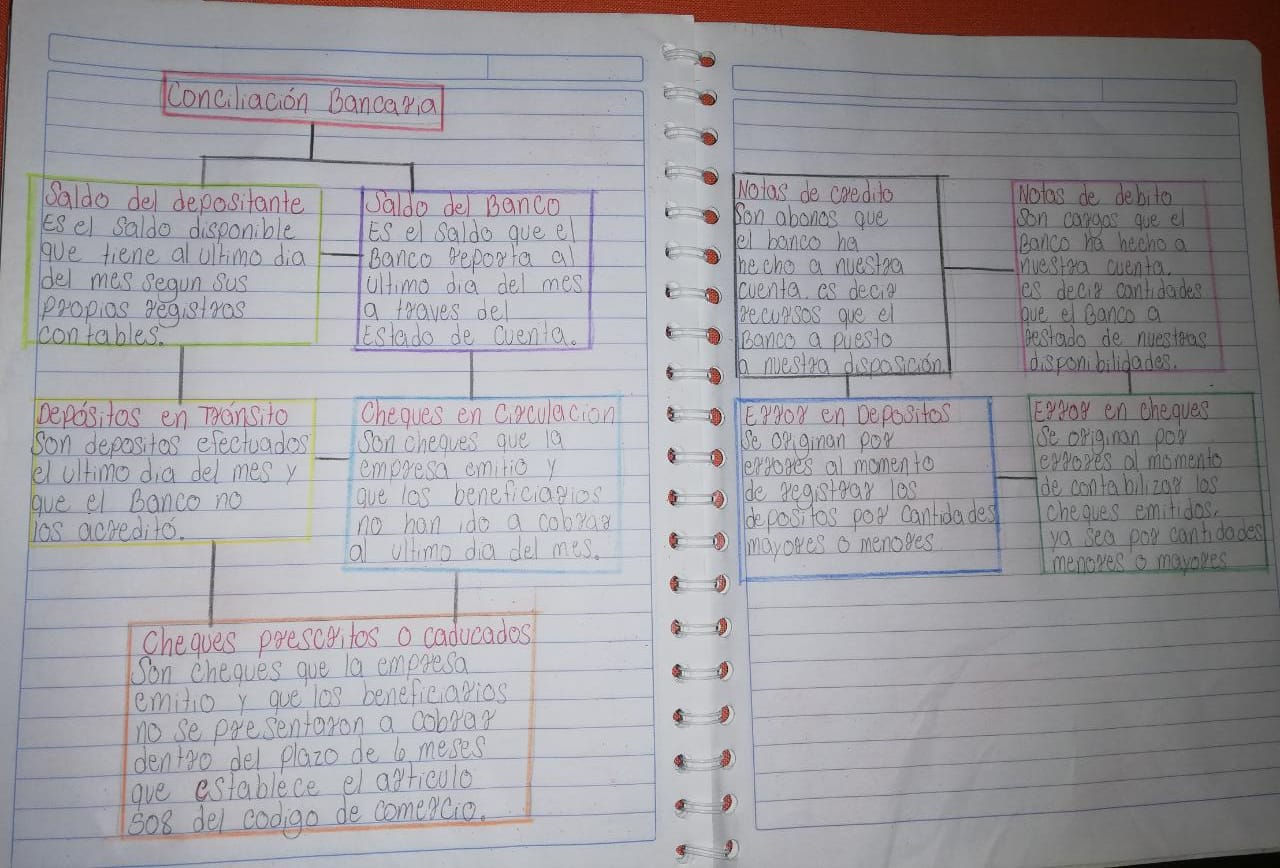 Conciliación Bancaria
Saldo del depositante
Es el saldo disponible
que tiene al ultimo dia
del mes segun sus
propios registros
contables.
Saldo del Banco
Es el saldo que el
Banco reporta al
ultimo dia del mes
a traves del
Estado de Cuenta.
Depósitos en Tránsito
Son depositos efectuados
el ultimo dia del mes y
que el Banco no
los acreditó.
Cheques en Circulacion
Son cheques que la
empresa emitio y
que los beneficiarios
no han ido a cobrar
al ultimo dia del mes.
Cheques prescritos o caducados
Son cheques que la empresa
emitio y que los beneficiarios
no se presentaron a cobrar
dentro del plazo de 6 meses
que establece el articulo
508 del codigo de comercio.
Notas de credito
Son abonos que
el banco ha
hecho a nuestra
cuenta. es decir
recursos que el
Banco a puesto
a nuestra disposición
Notas de debito
Son cargos que el
Banco ha hecho a
nuestra cuenta.
es decir cantidades
que el Banco a
restado de nuestras
disponibilidades.
Error en Depositos
Se originan por
errores al momento
de registrar los
depositos por cantidades
mayores o menores
Error en cheques
Se originan por
errores al momento
de contabilizar los
cheques emitidos,
ya sea por cantidades
menores o mayores